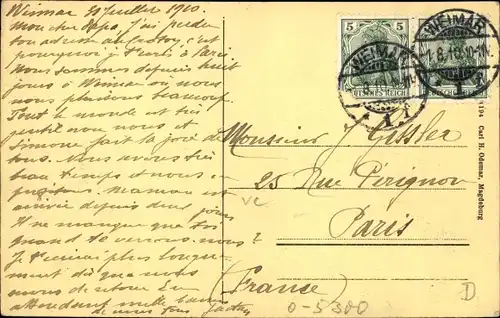 Weimar 31 Juillet 1910.
Mon cher Papa J'ai perdu
ton adresse
pourquoi j'écris à Paris
Nous sommes depuis huit
jours à Weimar où nous
nous plaisons beaucoup.
Tout le monde est très
gentil pour nous et
Simone fait la joie de
tous. Nous avons très
beau temps et nous en
profitons. Maman est
arrivée depuis deux jours
Il ne manque que toi
quand te verrons-nous?
Je t'écrirai plus longue-
ment dès que nous
de retour En
attendant mille baisers
de nous tous
5
5
DEUTSCHES REICH
WEIMAR
WEIMAR
1.8.10.10-11V.
1
1
Monsieur J Geissler
25 Rue Pérignon
Paris
(France)
VC
0-5300
D
Carl H. Odemar, Magdeburg